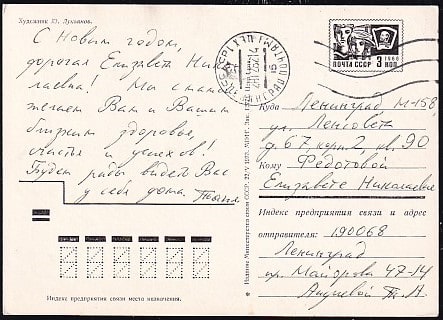 Художник Ю. Лукьянов.
С Новым годом,
дорогая Елизавета Нико-
лаевна! Мы с мамой
желаем Вам и Вашим
близким здоровья,
счастья и успехов!
Будем рады видеть Вас
у себя дома.
ПОЧТА СССР
3
1966
КОП
ЛЕНИНГРАД
ПОЧТАМТ
Куда
Ленинград М-158
ул. Ленсовета
д. 67, корп 2, кв. 90
Кому
Федотовой
Елизавете Николаевне
Индекс предприятия связи и адрес
отправителя:
190068
Ленинград
пр. Майорова 47-14
Т. А.
Индекс предприятия связи места назначения.
Издание Министерства связи СССР.